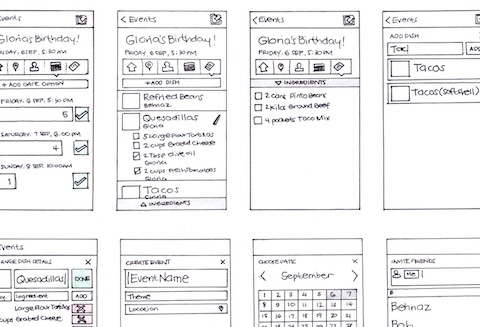 < Events
Gloria's Birthday!
FRIDAY, 6 SEP, 5:30 PM
+ ADD DATE OPTION
FRIDAY, 6 SEP, 5:30 PM
5
SATURDAY, 7 SEP, 6:00 PM
4
SUNDAY, 8 SEP, 10:00AM
1
< Events
Gloria's Birthday!
FRIDAY, 6 SEP, 5:30 PM
+ ADD DISH
Refried Beans
Behnaz
Quesadillas
Gloria
5 Large Flour Tortillas
2 cups Grated Cheese
2 Tbsp Olive oil
Gloria
2 cups Fresh Tomatoes
Gloria
Tacos
Gloria
INGREDIENTS
< Events
Gloria's Birthday!
FRIDAY, 6 SEP, 5:30 PM
INGREDIENTS
2 cans Pinto Beans
2 Kilos Ground Beef
4 packets Taco Mix
< Events
ADD DISH
Tac|
ADD
Tacos
Tacos (softshell)
Events
CHANGE DISH DETAILS X
Quesadillas| DONE
Ingredient ADD
Large Flour Tortillas
cups Grated Cheese
CREATE EVENT X
|Event Name
Theme
Location
CHOOSE DATE X
< September >
1 2 3 4 5 6 7
8 9 10 11 12 13 14
INVITE FRIENDS
Me |
B
Behnaz
Bob